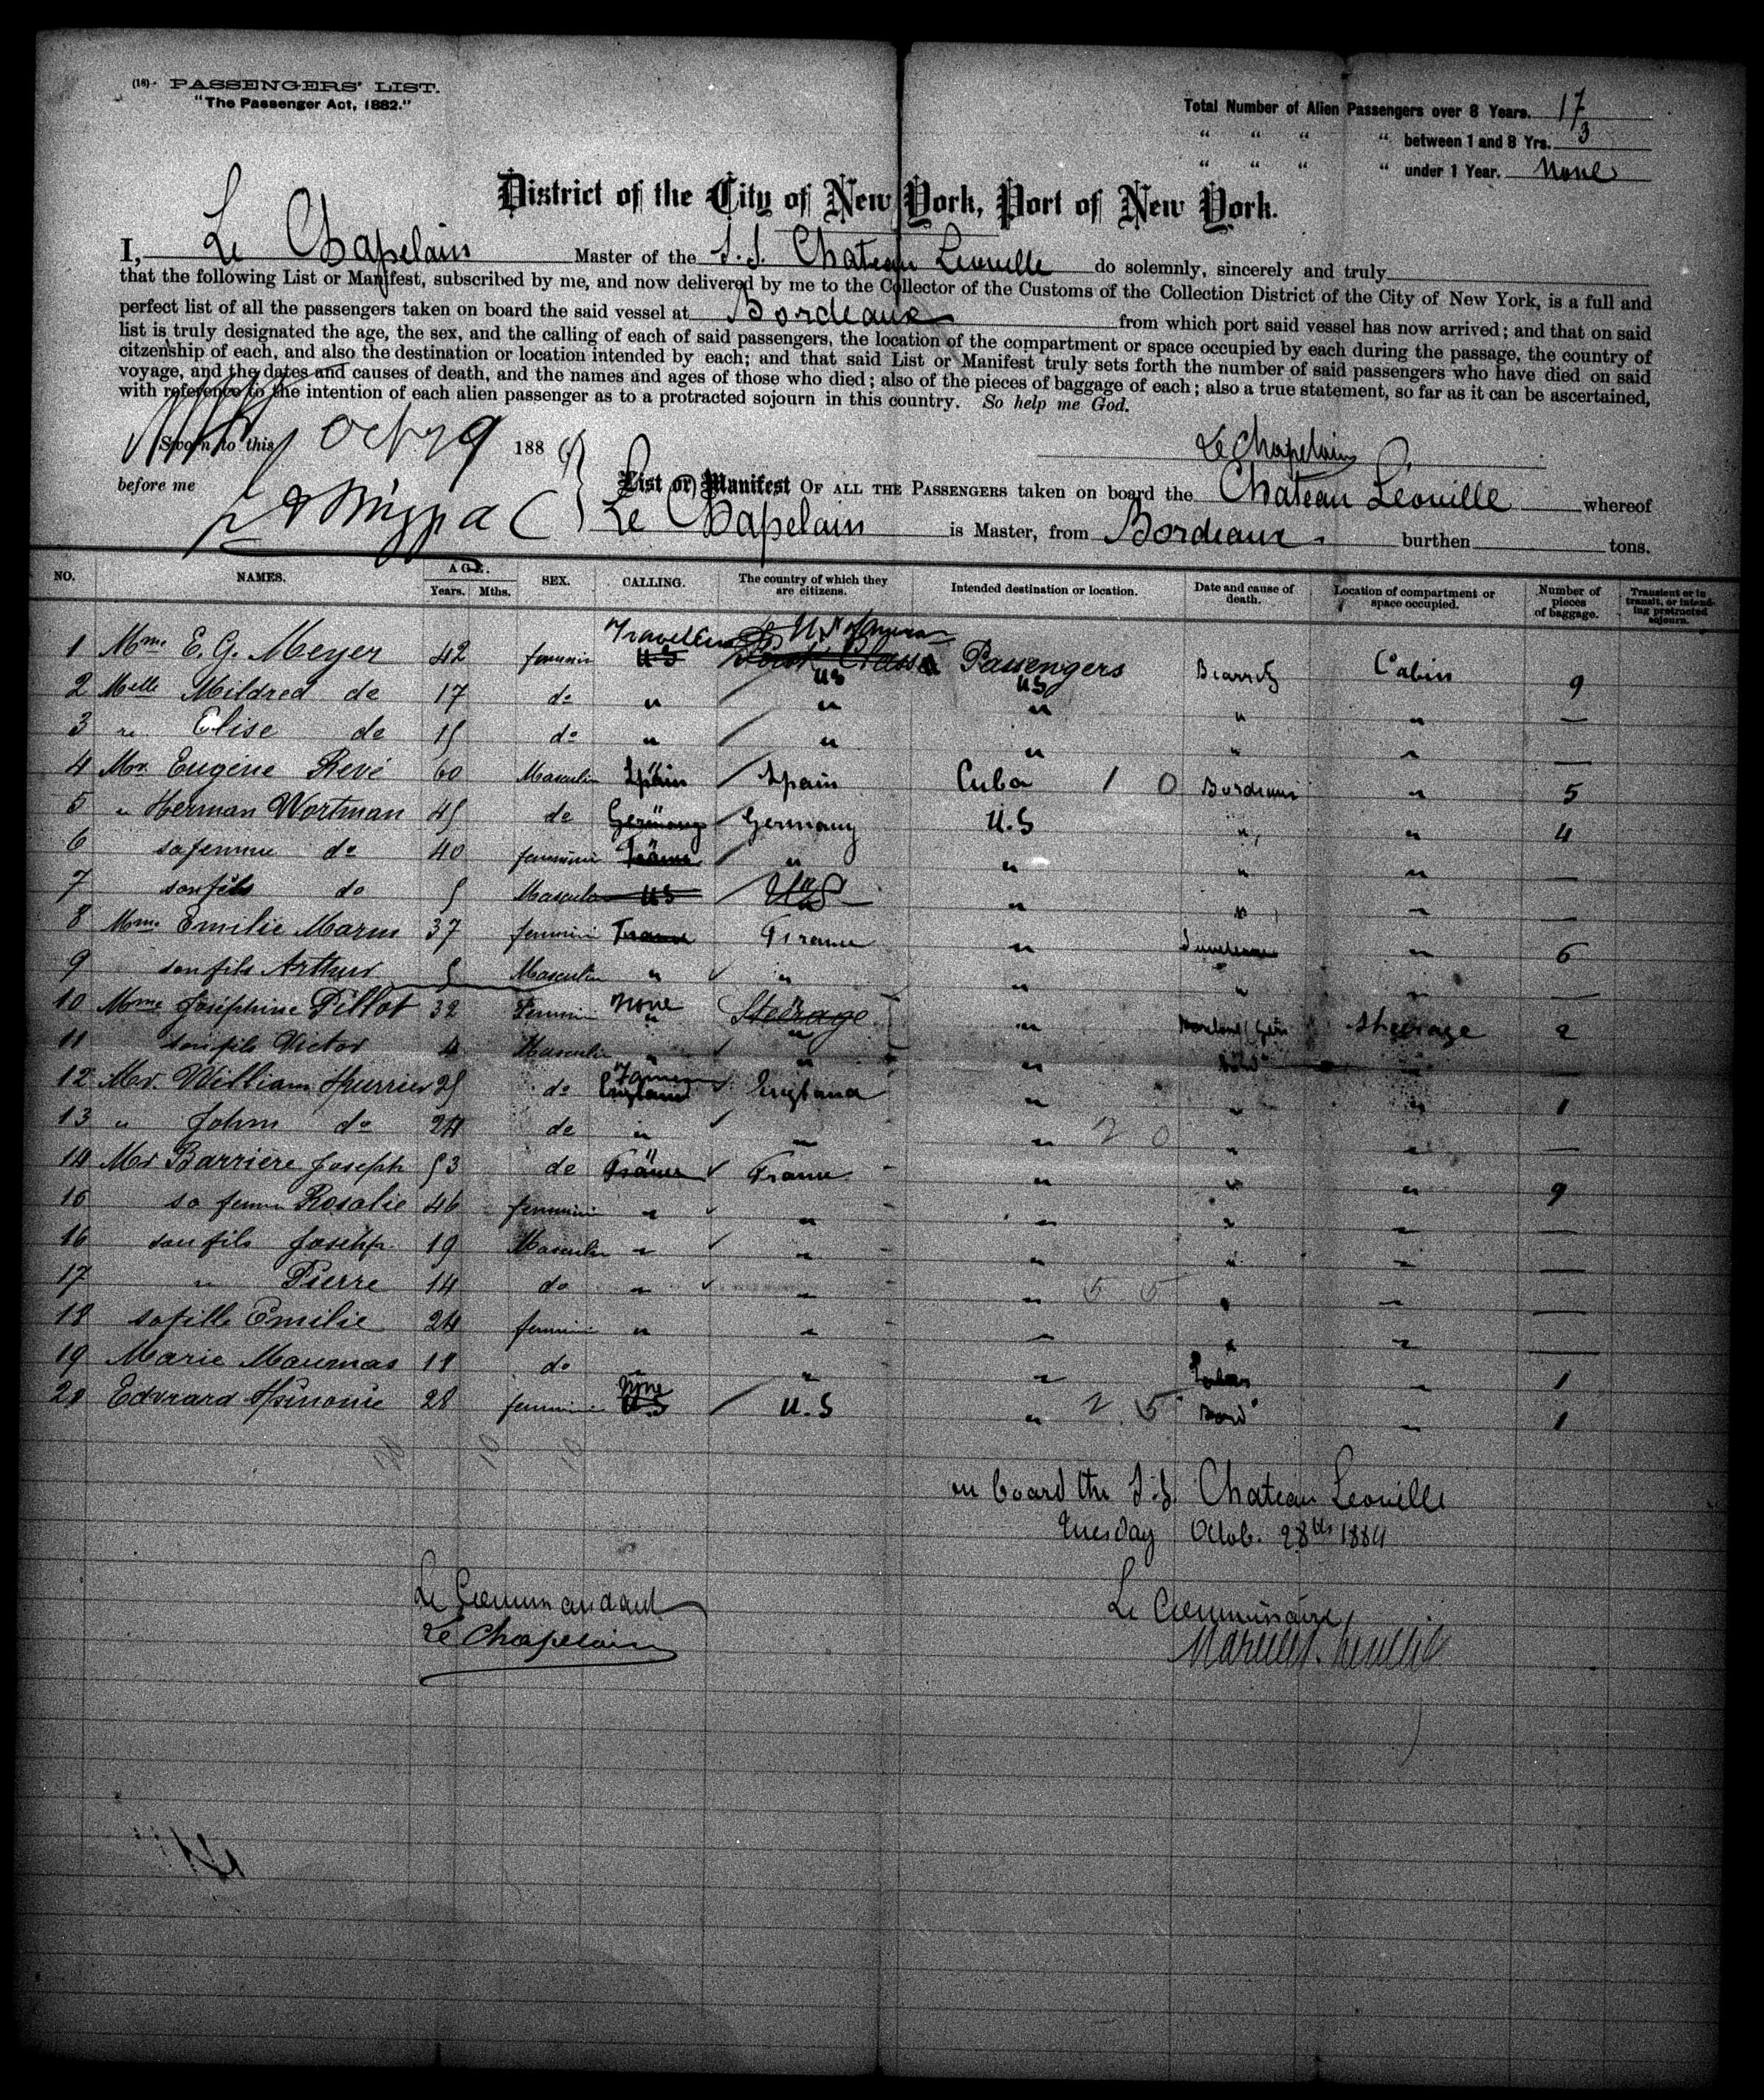 (18)- PASSENGERS' LIST.
"The Passenger Act, 1882."
Total Number of Alien Passengers over 8 Years. 17
" " " " between 1 and 8 Yrs. 3
" " " " under 1 Year. None
District of the City of New York, Port of New York.
I, Le Chapelain Master of the S.S. Chateau Leoville do solemnly, sincerely and truly
that the following List or Manifest, subscribed by me, and now delivered by me to the Collector of the Customs of the Collection District of the City of New York, is a full and
perfect list of all the passengers taken on board the said vessel at Bordeaux from which port said vessel has now arrived; and that on said
list is truly designated the age, the sex, and the calling of each of said passengers, the location of the compartment or space occupied by each during the passage, the country of
citzenship of each, and also the destination or location intended by each; and that said List or Manifest truly sets forth the number of said passengers who have died on said
voyage, and the dates and causes of death, and the names and ages of those who died; also of the pieces of baggage of each; also a true statement, so far as it can be ascertained,
with reference to the intention of each alien passenger as to a protracted sojourn in this country. So help me God.
Sworn to this Oct 29 188
Le Chapelain
before me
List or Manifest OF ALL THE PASSENGERS taken on board the Chateau Leoville whereof
Le Chapelain is Master, from Bordeaux burthen tons.
NO. NAMES. AGE. Years. Mths. SEX. CALLING. The country of which they are citizens. Intended destination or location. Date and cause of death. Location of compartment or space occupied. Number of pieces of baggage. Transient or in transit, or intending protracted sojourn.
1 Mme E. G. Meyer 42 feminin US Passengers US Biarritz Cabin 9
2 Melle Mildred do 17 do " " " " " —
3 Elise do 15 do " " " " " —
4 Mr. Eugene Revé 60 Masculin Spain Spain Cuba 1 0 Bordeaux " 5
5 " Herman Wortman 45 do Germany Germany U.S " " 4
6 sa femme do 40 feminin " " " " —
7 son fils do 5 Masculin US " " " —
8 Mme Emilie 37 feminin France France " " 6
9 son fils Arthur 5 Masculin " " " " " —
10 Mme Joséphine Pillot 32 Feminin None Steerage " Steerage 2
11 son fils Victor 4 Masculin " " " —
12 Mr. William 25 do England England " " " 1
13 " John do 24 do " " " 2 0 " " —
14 Mr Barriere Joseph 53 do France France " " " 9
15 sa femme Rosalie 46 feminin " " " " " —
16 son fils Joseph 19 Masculin " " " " " —
17 " Pierre 14 do " " " 5 5 " " —
18 sa fille Emilie 24 feminin " " " " " —
19 Marie Maumas 18 do " " " " 1
20 Edvrard 28 feminin None U.S U.S " 2 5 Bord " 1
on board the S.S. Chateau Leoville
Tuesday Octob. 28th 1884
Le Commandant
Le Chapelain
Le Commissaire